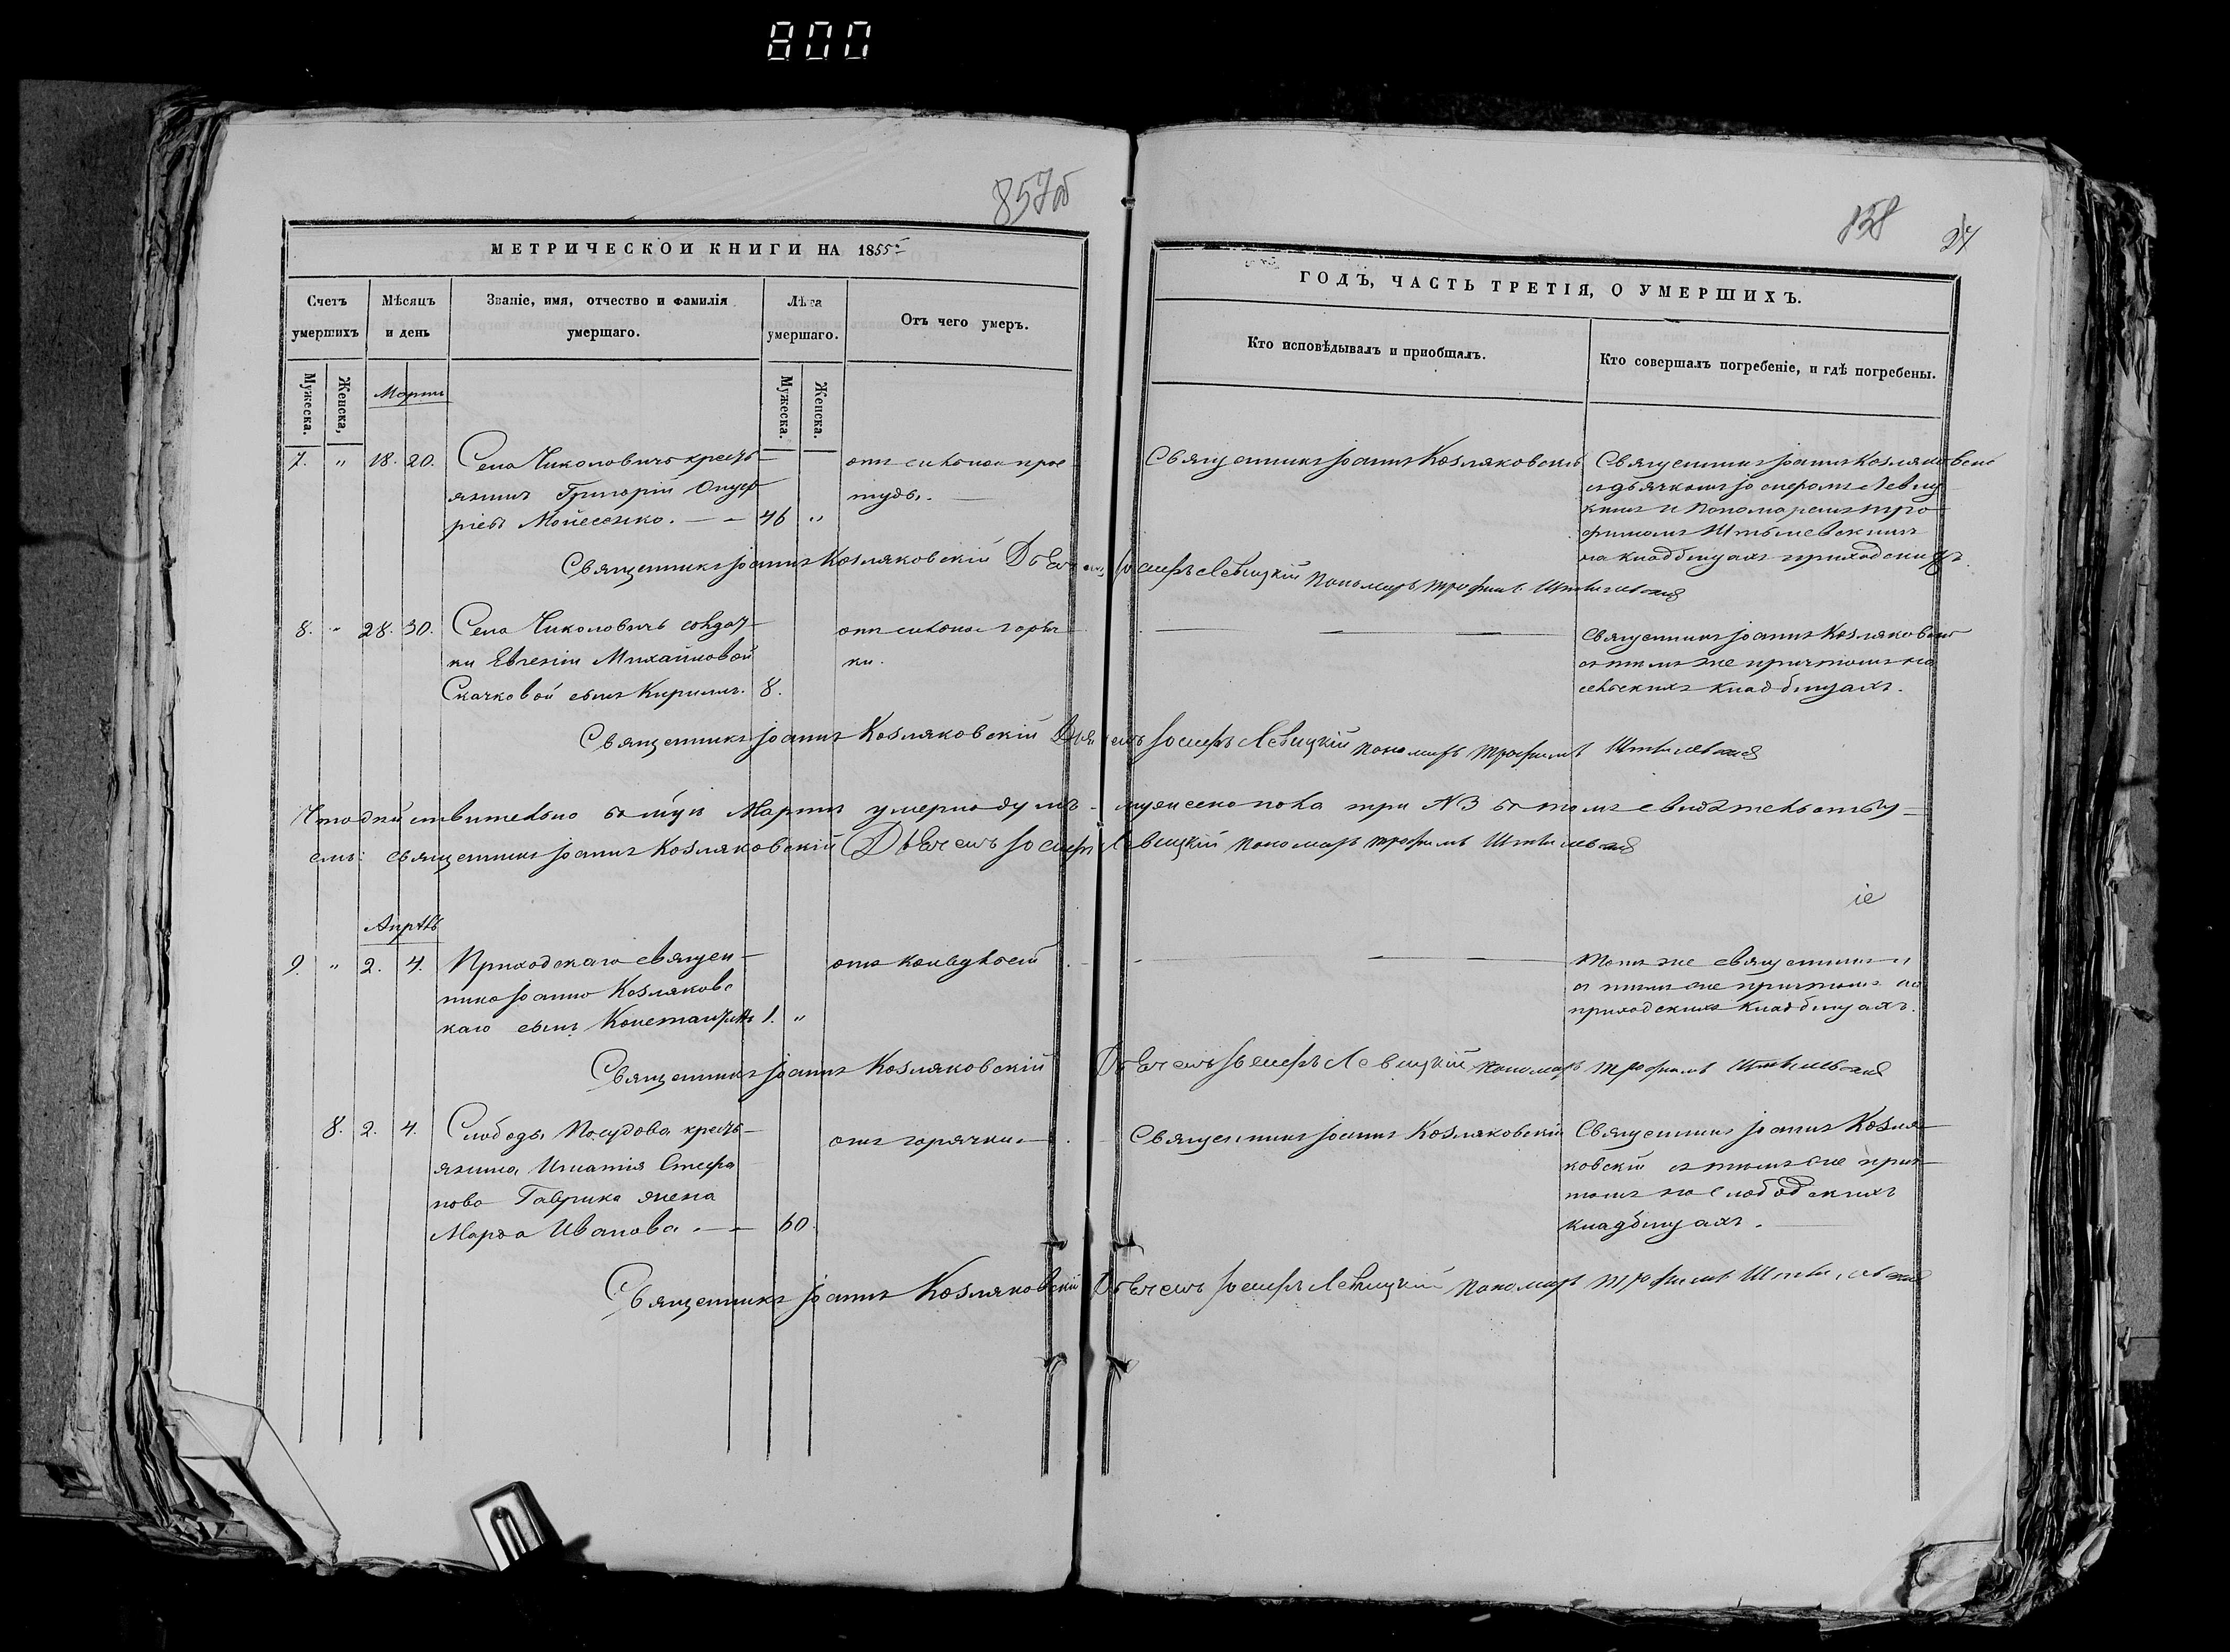 800
857об
МЕТРИЧЕСКОЙ КНИГИ НА 1855й
Счетъ умершихъ
Мѣсяцъ и день
Званіе, имя, отчество и фамилія умершаго.
Лѣта умершаго.
Отъ чего умеръ.
Мужеска.
Женска,
Мартъ
Мужеска.
Женска.
7. " 18. 20. Села Чиколовичь кресть-
янинъ Григорій
Мойсеенко. — 46 "
отъ сильной прос-
туды. —
8. " 28. 30. Села Чиколовичь солдат-
ки Евгеніи Михайловой
Скачковой сынъ Кирилъ. 8.
отъ сильной горяч-
ки.
9. " 2. 4. Приходскаго священ-
ника Іоанна Козляковс
каго сынъ Константинъ 1. "
Апрѣль
8. 2. 4. Слободы Посудова кресть-
янина Игнатія Стефа
нова Гаврика жена
Марѳа Иванова. — 60.
отъ горячки. —
858
27
ГОДЪ, ЧАСТЬ ТРЕТІЯ, О УМЕРШИХЪ.
Кто исповѣдывалъ и пріобщалъ.
Кто совершалъ погребеніе, и гдѣ погребены.
Священникъ Іоаннъ Козляковскій
Священникъ Іоаннъ Козляковскій
съ дьячкомъ Іосифомъ Левиц
кимъ и Пономаремъ Тро-
фимомъ
на кладбищахъ приходскихъ.
Священникъ Іоаннъ Козляковскій Дьячекъ Іосифъ Левицкій Пономарь Трофимъ
Священникъ Іоаннъ Козляковскій
съ тѣмъ же причтомъ на
сельскихъ кладбищахъ.
Священникъ Іоаннъ Козляковскій Дьячекъ Іосифъ Левицкій пономарь Трофимъ
Что дѣйствительно въ Мартѣ умерло душъ мужеска пола три №3 въ томъ свидѣтельству-
емъ: священникъ Іоаннъ Козляковскій Дьячекъ Іосифъ Левицкій пономарь Трофимъ
тотъ же священникъ
съ тѣмъ же причтомъ на
приходскихъ кладбищахъ.
Священникъ Іоаннъ Козляковскій Дьячекъ Іосифъ Левицкій пономарь Трофимъ
Священникъ Іоаннъ Козляковскій
Священникъ Іоаннъ Козля-
ковскій съ тѣмъ же прич-
томъ на слободскихъ
кладбищахъ. —
Священникъ Іоаннъ Козляковскій Дьячекъ Іосифъ Левицкій Пономарь Трофимъ